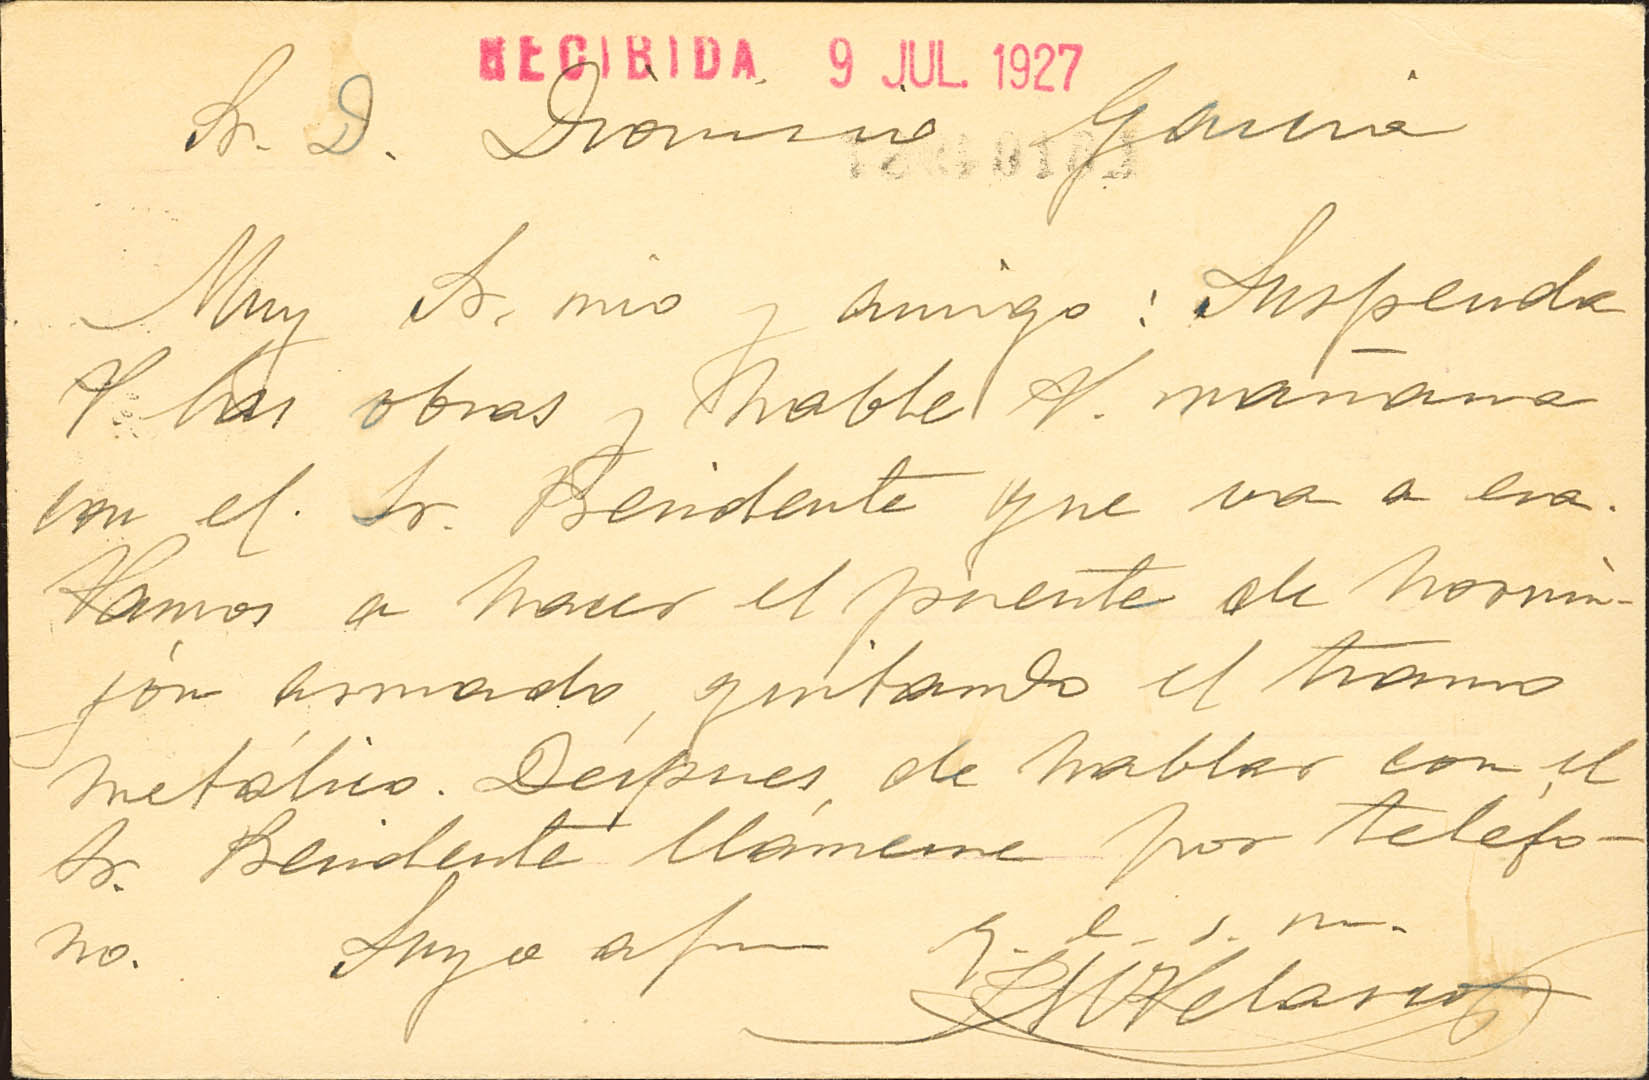 RECIBIDA 9 JUL. 1927
Sr. D. Dionisio Garcia
Muy Sr. mio y amigo: Suspenda
V. las obras y hable V. mañana
con el Sr. que va a esa.
Vamos a hacer el puente de hormi-
jón armado, quitando el tramo
metálico. Déspues de hablar con el
Sr. llámeme por teléfo-
no. Suyo afmo q. e. s. m.
Velasco